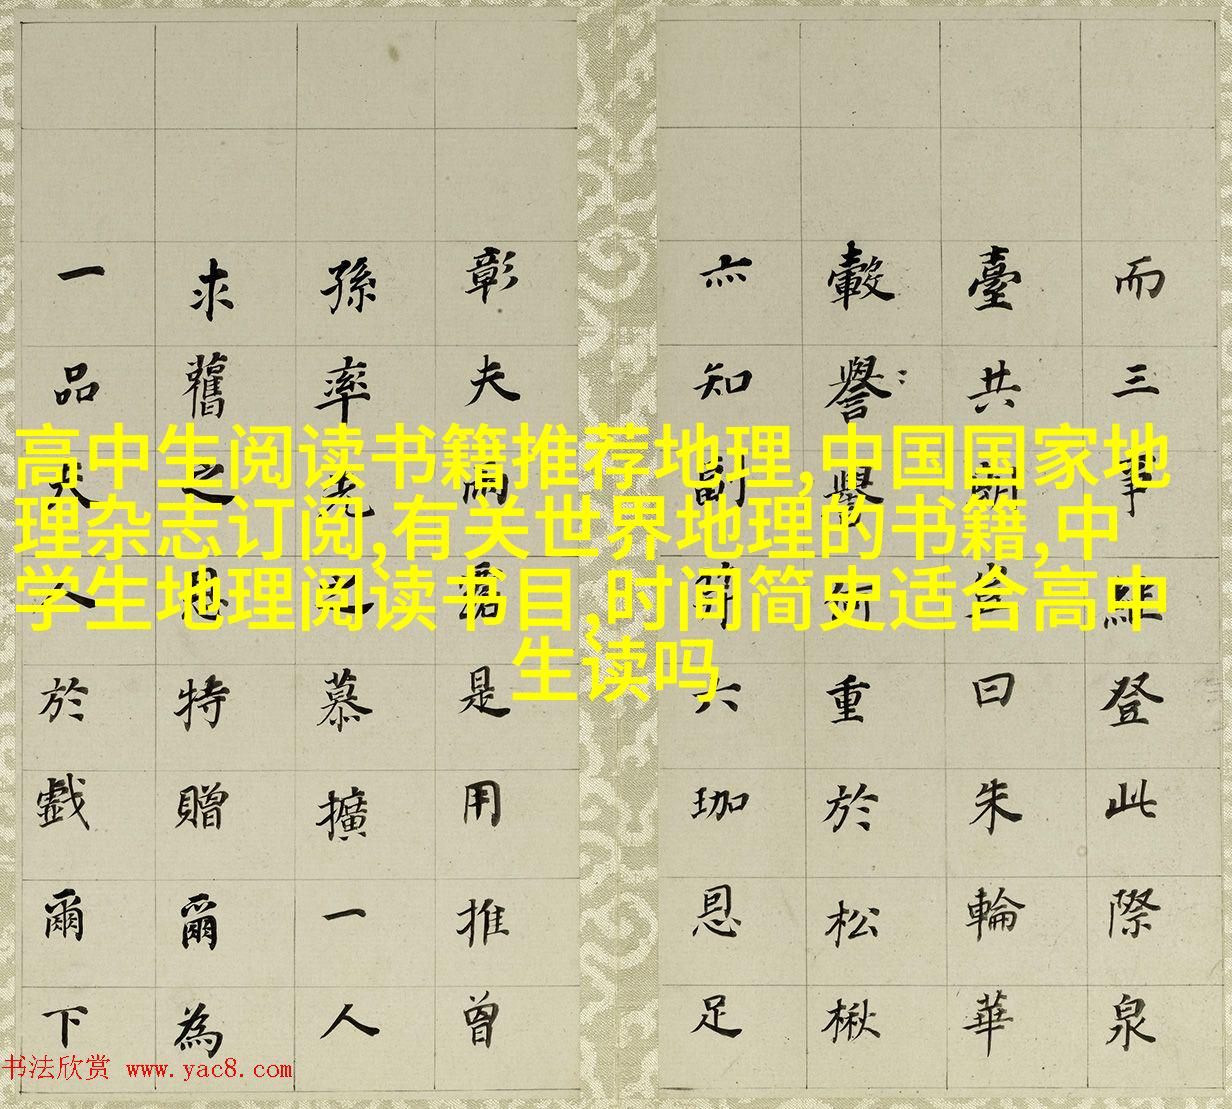 高中生阅读书籍推荐地理,中国国家地
理杂志订阅,有关世界地理的书籍,中
学生地理阅读书目,时间简史适合高中
生读吗
而三事登此際泉
臺共曰朱輪華
轂譽重於松楸
亦知副笄六珈恩足
彰夫是用推曾
孫率先之慕擴一人
求舊之恩特贈爾為
一品夫人於戲爾下
书法欣赏 www.yac8.com